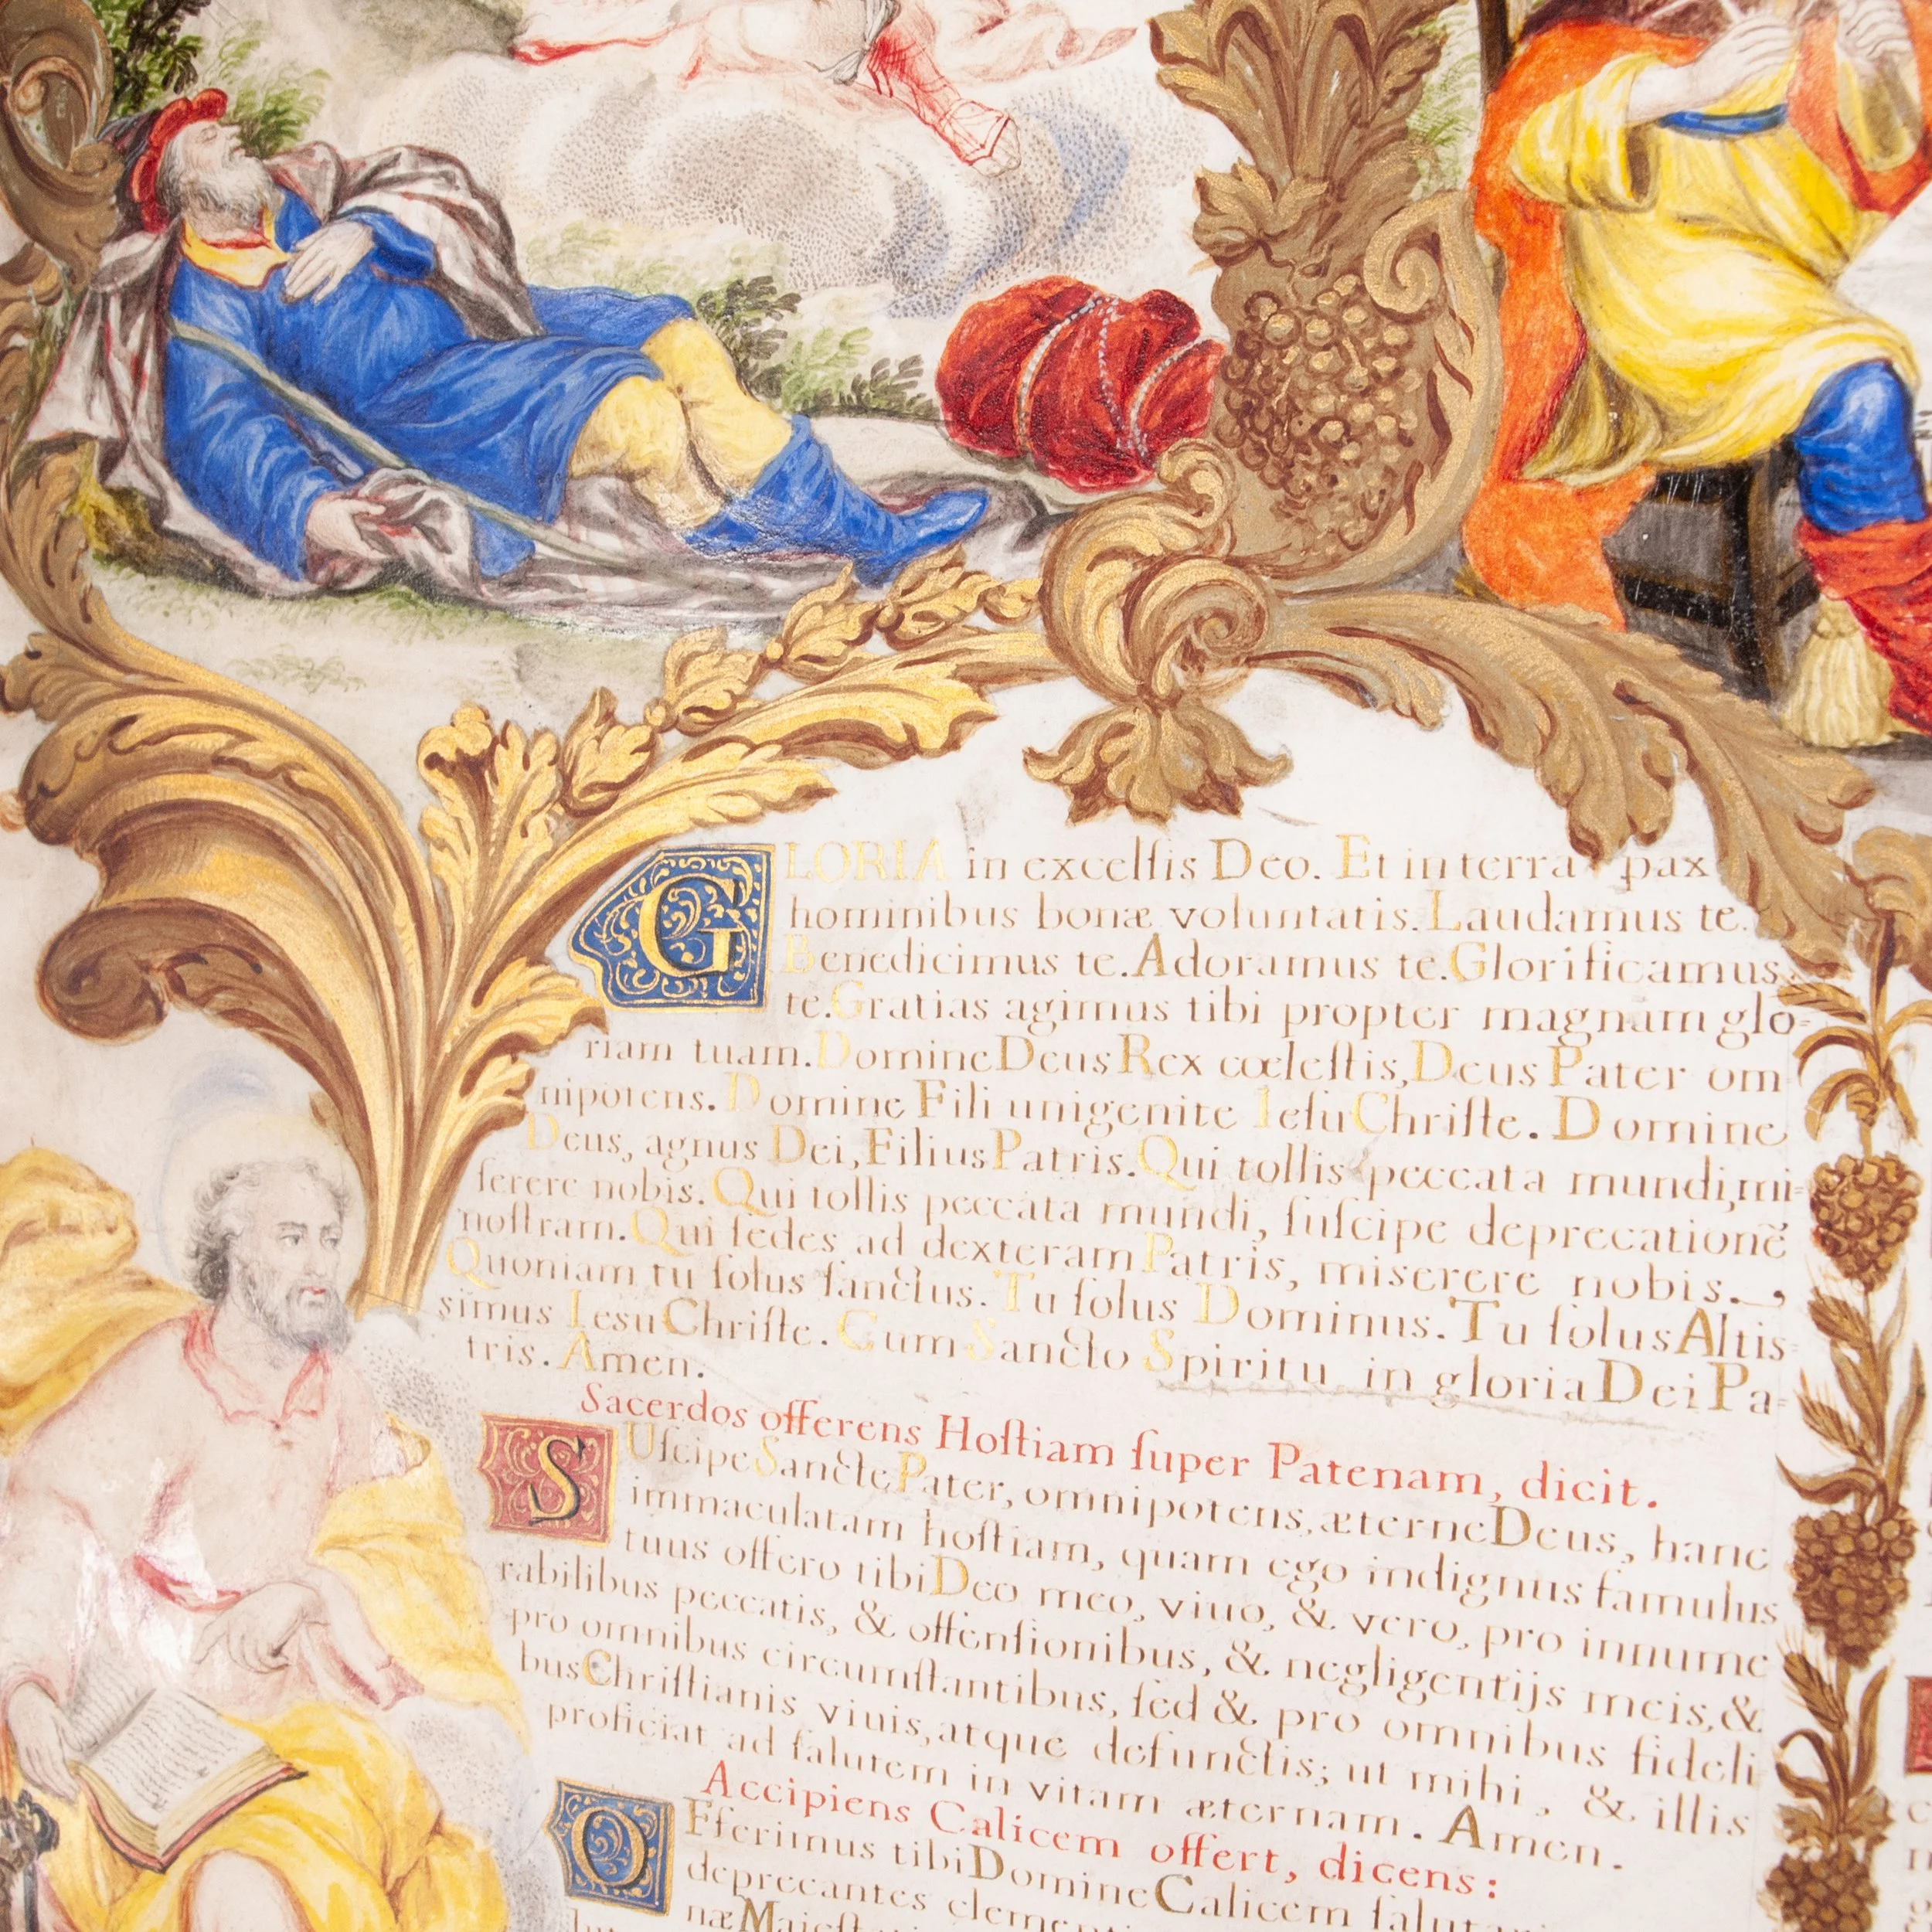 GLORIA in excelſis Deo. Et in terra pax
hominibus bonæ voluntatis. Laudamus te.
Benedicimus te. Adoramus te. Glorificamus
te. Gratias agimus tibi propter magnam glo-
riam tuam. Domine Deus Rex cœleſtis, Deus Pater om
nipotens. Domine Fili unigenite Ieſu Chriſte. Domine
Deus, agnus Dei, Filius Patris. Qui tollis peccata mundi, mi-
ſerere nobis. Qui tollis peccata mundi, ſuſcipe deprecationẽ
noſtram. Qui ſedes ad dexteram Patris, miserere nobis.
Quoniam tu ſolus ſanctus. Tu ſolus Dominus. Tu ſolus Altis-
simus Iesu Chriſte. Cum Sancto Spiritu in gloria Dei Pa-
tris. Amen.
Sacerdos offerens Hoſtiam ſuper Patenam, dicit.
SUſcipe Sancte Pater, omnipotens, æterne Deus, hanc
immaculatam hoſtiam, quam ego indignus famulus
tuus offero tibi Deo meo, viuo, & vero, pro innume
rabilibus peccatis, & offenſionibus, & negligentijs meis, &
pro omnibus circumſtantibus, ſed & pro omnibus fideli
bus Chriſtianis viuis, atque defunctis; ut mihi, & illis
proficiat ad ſalutem in vitam æternam. Amen.
Accipiens Calicem offert, dicens:
OFferimus tibi Domine Calicem ſalutari
deprecantes clemen
næ Maieſt